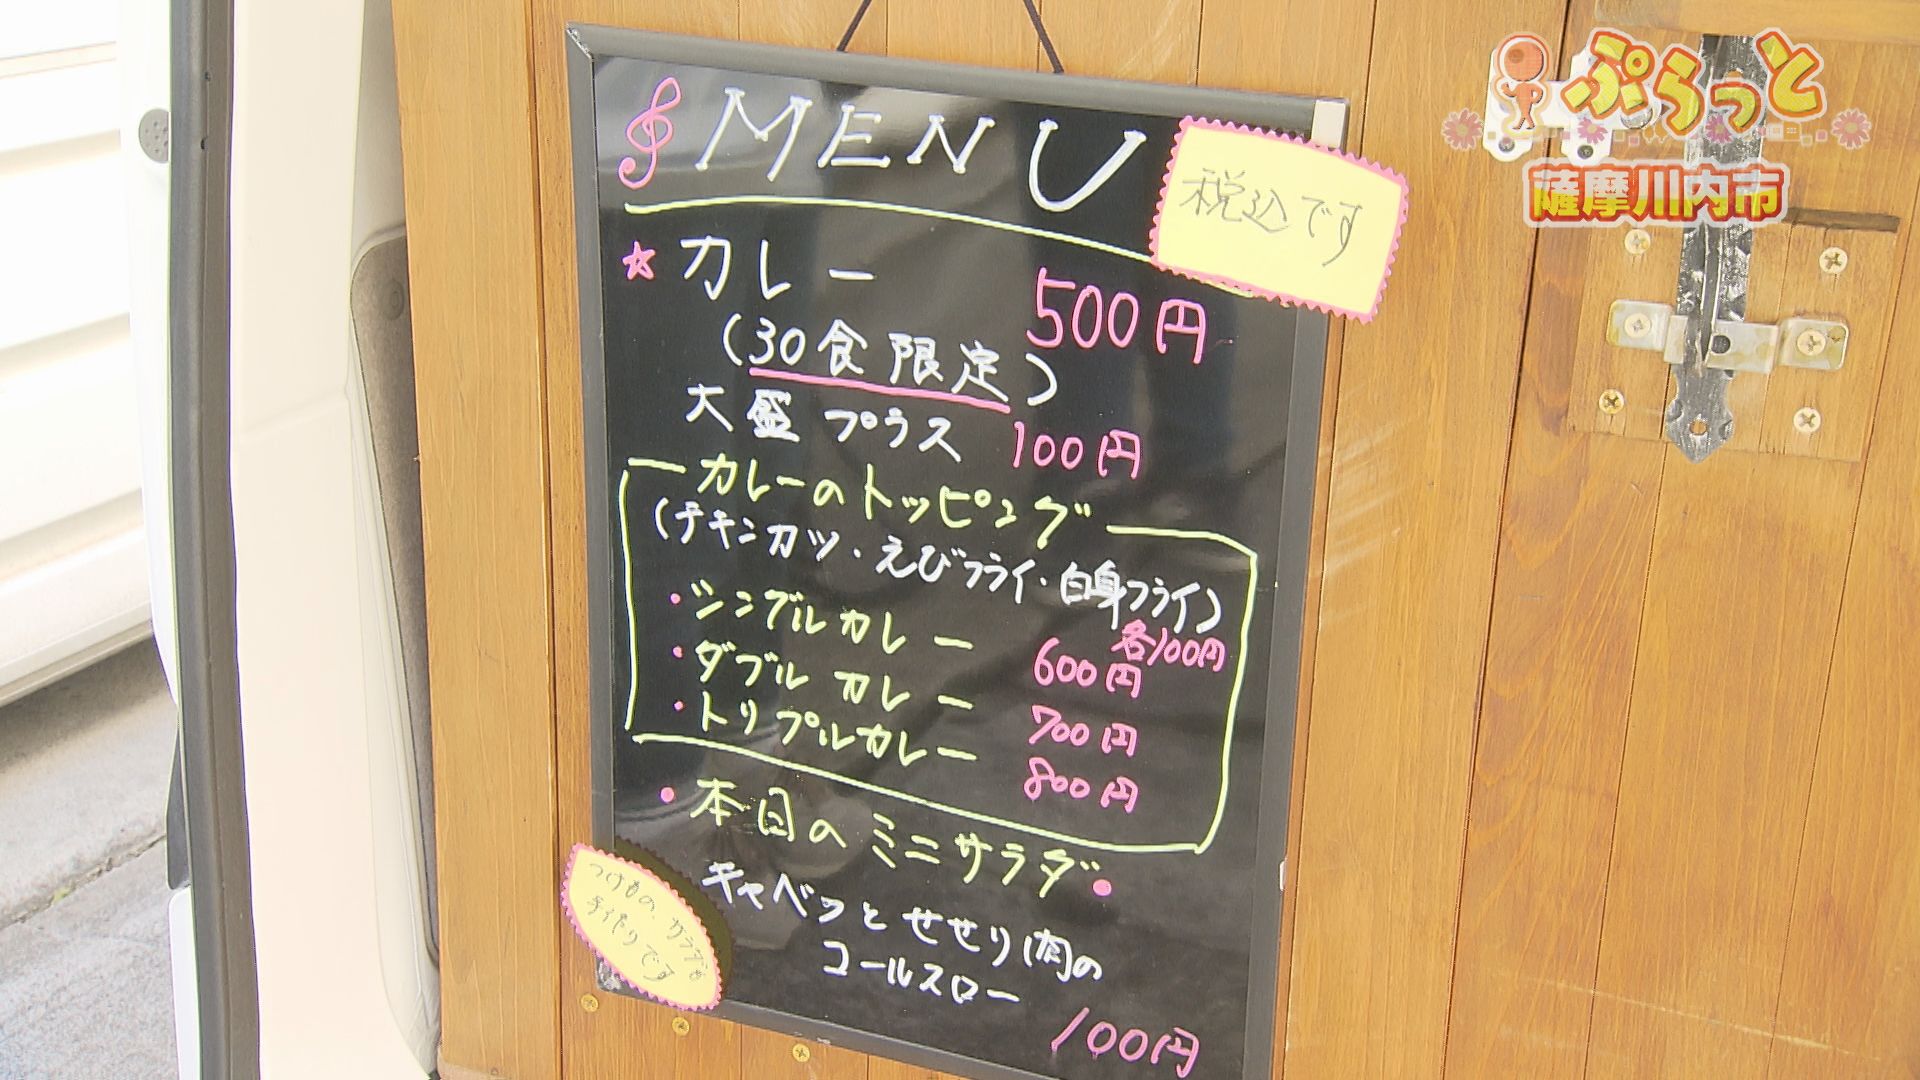 ぷらっと
薩摩川内市
MENU
税込です
カレー 500円
(30食限定)
大盛プラス 100円
カレーのトッピング
(チキンカツ・えびフライ・白身フライ)
各100円
・シングルカレー 600円
・ダブルカレー 700円
・トリプルカレー 800円
・本日のミニサラダ・
キャベツとせせり肉の
コールスロー
100円
つけもの、サラダも
手作りです